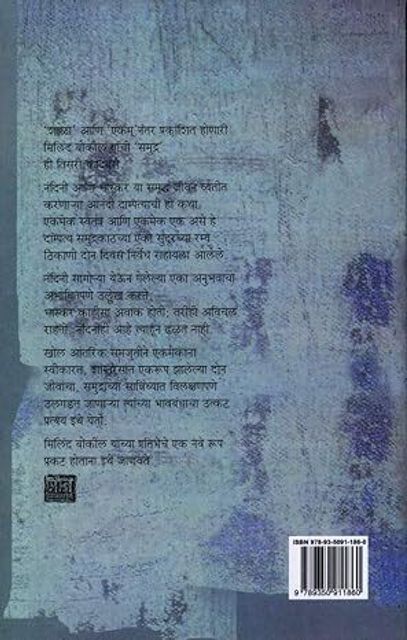 'शाळा' आणि 'एकम्'नंतर प्रकाशित होणारी
मिलिंद बोकील यांची 'समुद्र'
ही तिसरी कादंबरी
नंदिनी आणि भास्कर या समृद्ध जीवन व्यतीत
करणाऱ्या आनंदी दाम्पत्याची ही कथा.
एकमेक स्वतंत्र आणि एकमेक एक असे हे
दाम्पत्य समुद्रकाठच्या एका सुंदरच्या रम्य
ठिकाणी दोन दिवस निर्वेध राहायला आलेले
नंदिनी सामोऱ्या येऊन गेलेल्या एका अनुभवाचा
अभावितपणे उल्लेख करते.
भास्कर काहीसा अवाक होतो, तरीही अविचल
राहतो. नंदिनीही आहे त्याहून ढळत नाही
खोल आंतरिक समजुतीने एकमेकांना
स्वीकारत, एकरूप झालेल्या दोन
जीवांचा, समुद्राच्या सान्निध्यात विलक्षणपणे
उलगडत जाणाऱ्या त्यांच्या भावबंधाचा उत्कट
प्रत्यय इथे येतो.
मिलिंद बोकील यांच्या प्रतिभेचे एक नवे रूप
प्रकट होताना इथे जाणवते
ISBN 978-93-5091-186-0
9 789350 911860